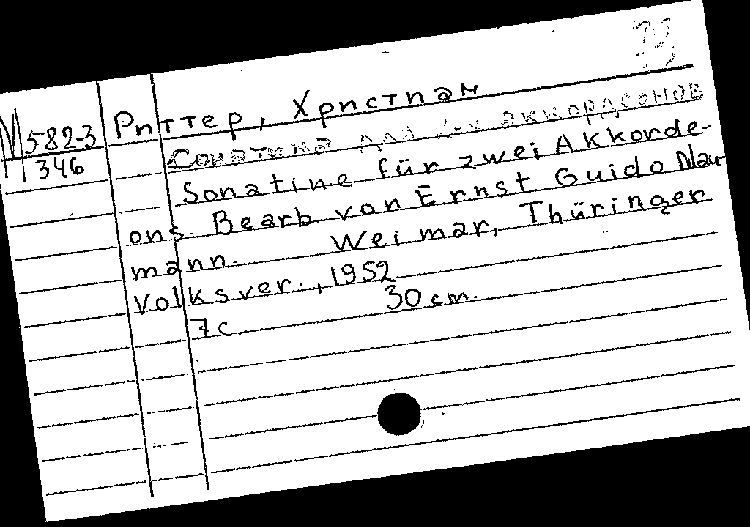 М 582-3
346
Риттер, Христиан
Сонатина для 2-х аккордеонов
Sonatine für zwei Akkorde-
ons. Bearb von Ernst Guido Nau-
mann. Weimar, Thüringer
Volksver., 1952
7 с. 30 cm.